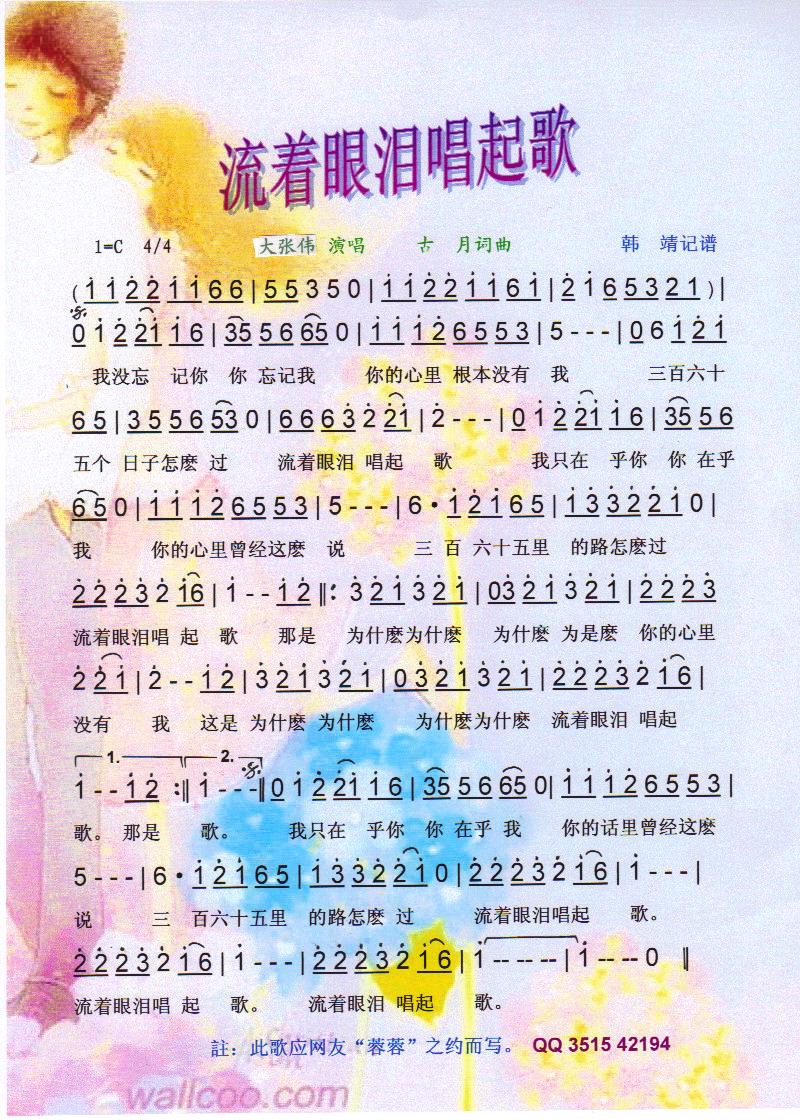 流着眼泪唱起歌
1=C 4/4 大张伟 演唱 古 月词曲 韩 靖记谱
(1 1 2 2 1 1 6 6 | 5 5 3 5 0 | 1 1 2 2 1 1 6 1 | 2 1 6 5 3 2 1 ) |
0 1 2 21 1 6 | 35 5 6 65 0 | 1 1 1 2 6 5 5 3 | 5 - - - | 0 6 1 2 1
我没忘 记你 你 忘记我 你的心里 根本没有 我 三百六十
6 5 | 3 5 5 6 53 0 | 6 6 6 3 2 21 | 2 - - - | 0 1 2 21 1 6 | 35 5 6
五个 日子怎麽 过 流着眼泪 唱起 歌 我只在 乎你 你 在乎
6 5 0 | 1 1 1 2 6 5 5 3 | 5 - - - | 6 · 1 2 1 6 5 | 1 3 3 2 2 1 0 |
我 你的心里曾经这麽 说 三 百 六十五里 的路怎麽过
2 2 2 3 2 16 | 1 - - 1 2 ‖: 3 2 1 3 2 1 | 03 2 1 3 2 1 | 2 2 2 3
流着眼泪唱 起 歌 那是 为什麽为什麽 为什麽 为是麽 你的心里
2 2 1 | 2 - - 1 2 | 3 2 1 3 2 1 | 0 3 2 1 3 2 1 | 2 2 2 3 2 1 6 |
没有 我 这是 为什麽 为什麽 为什麽为什麽 流着眼泪 唱起
1. 2.
1 - - 1 2 :‖ 1 - - -‖ 0 1 2 21 1 6 | 35 5 6 65 0 | 1 1 1 2 6 5 5 3 |
歌。 那是 歌。 我只在 乎你 你 在乎 我 你的话里曾经这麽
5 - - - | 6 · 1 2 1 6 5 | 1 3 3 2 2 1 0 | 2 2 2 3 2 1 6 | 1 - - - |
说 三 百六十五里 的路怎麽 过 流着眼泪唱起 歌。
2 2 2 3 2 1 6 | 1 - - - | 2 2 2 3 2 1 6 | 1 -- -- -- | 1 -- -- 0 ‖
流着眼泪唱 起 歌。 流着眼泪 唱起 歌。
註：此歌应网友“蓉蓉”之约而写。 QQ 3515 42194
wallcoo.com